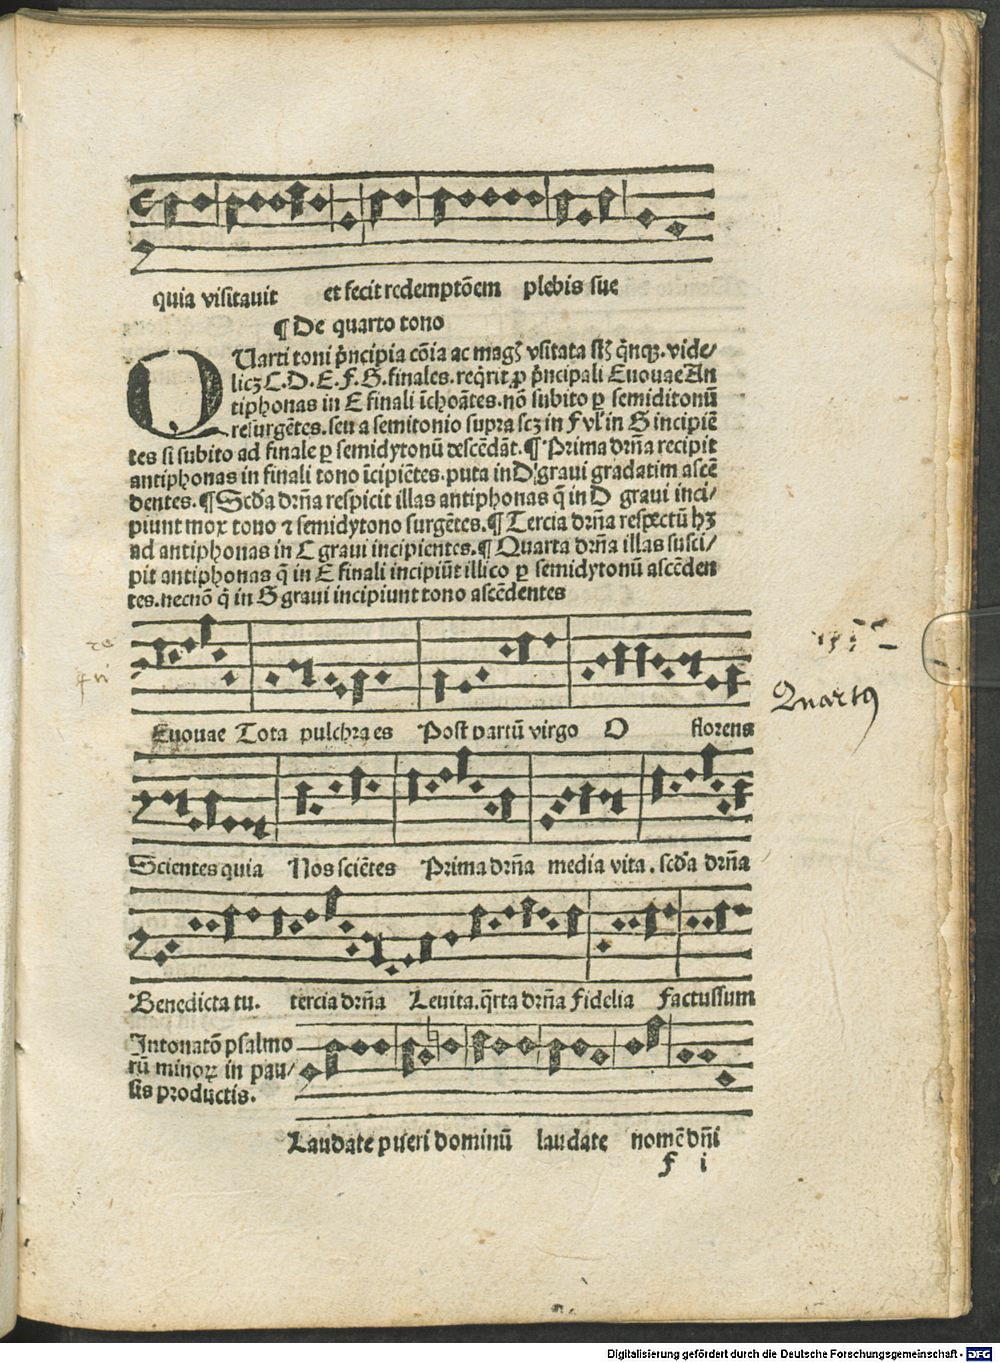 quia visitauit et fecit redemptōem plebis sue
¶ De quarto tono
QUarti toni p̄ncipia cōia ac magꝫ vsitata sūt q̄nqꝫ. vide/
licꝫ C.D.E.F.G. finales. reqͥrit p̱ p̄ncipali Euouae An
tiphonas in E finali īchoātes. nō subito ꝑ semiditonū
resurgētes. seu a semitonio supra scꝫ in F vl' in G incipiē
tes si subito ad finale ꝑ semidytonū descēdāt. ¶ Prima dr̄na recipit
antiphonas in finali tono īcipiētes. puta in D graui gradatim ascē
dentes. ¶ Scd'a dr̄na respicit illas antiphonas q̄ in D graui inci/
piunt mox tono ⁊ semidytono surgētes. ¶ Tercia dr̄na respectū hꝫ
ad antiphonas in C graui incipientes. ¶ Quarta dr̄na illas susci/
pit antiphonas q̄ in E finali incipiūt illico ꝑ semidytonū ascēden
tes. necnō q̄ in G graui incipiunt tono ascēdentes
Quartus
Euouae Tota pulchra es Post partū virgo O florens
Scientes quia Nos sciētes Prima dr̄na media vita. scd'a dr̄na
Benedicta tu. tercia dr̄na Leuita. q̄rta dr̄na Fidelia Factus sum
Intonatō psalmo
rū minoꝝ in pau/
sis productis.
Laudate pueri dominū laudate nomē dn̄i
F i
Digitalisierung gefördert durch die Deutsche Forschungsgemeinschaft - DFG